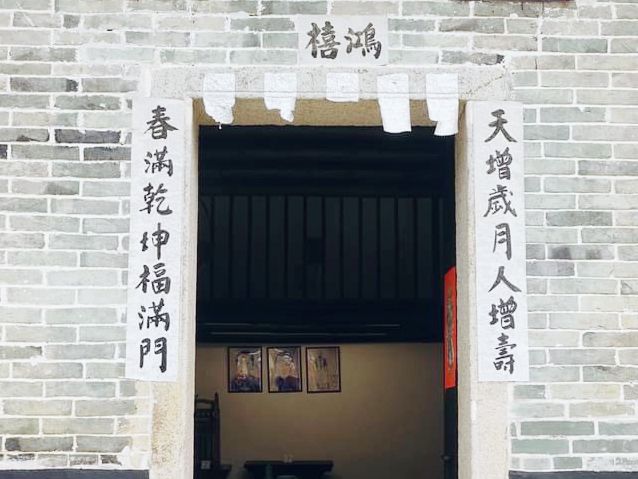 鴻禧
天增歲月人增壽
春滿乾坤福滿門